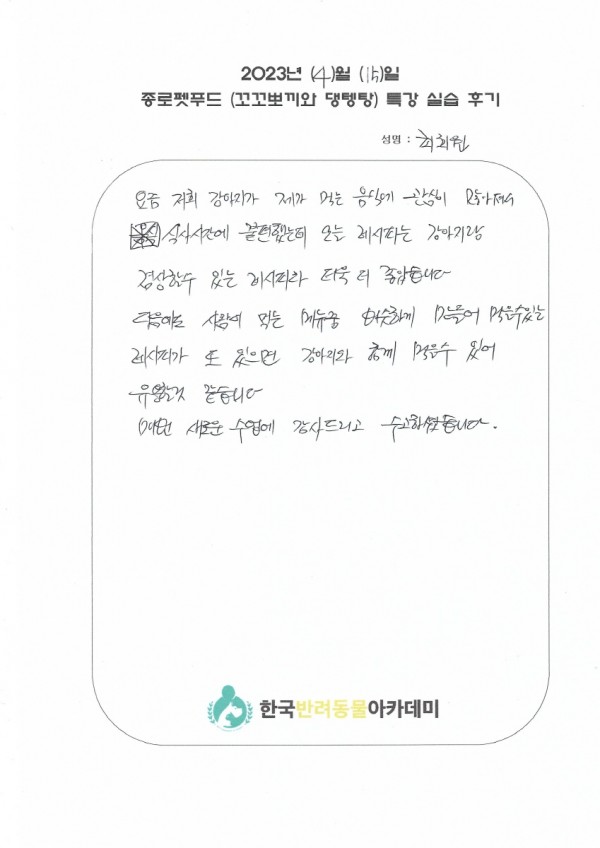 2023년 (4)월 (15)일
종로펫푸드 (꼬꼬뽀끼와 댕텡탕) 특강 실습 후기
성명 : 최희원
요즘 저희 강아지가 제가 먹는 음식에 관심이 많아져서
식사시간에 불편했는데 오늘 레시피는 강아지랑
겸상할수 있는 레시피라 더욱 더 좋았습니다
다음에도 사람이 먹는 메뉴중 비슷하게 만들어 먹을수있는
레시피가 또 있으면 강아지와 함께 먹을수 있어
유익할것 같습니다
매번 새로운 수업에 감사드리고 수고하셨습니다.
한국반려동물아카데미